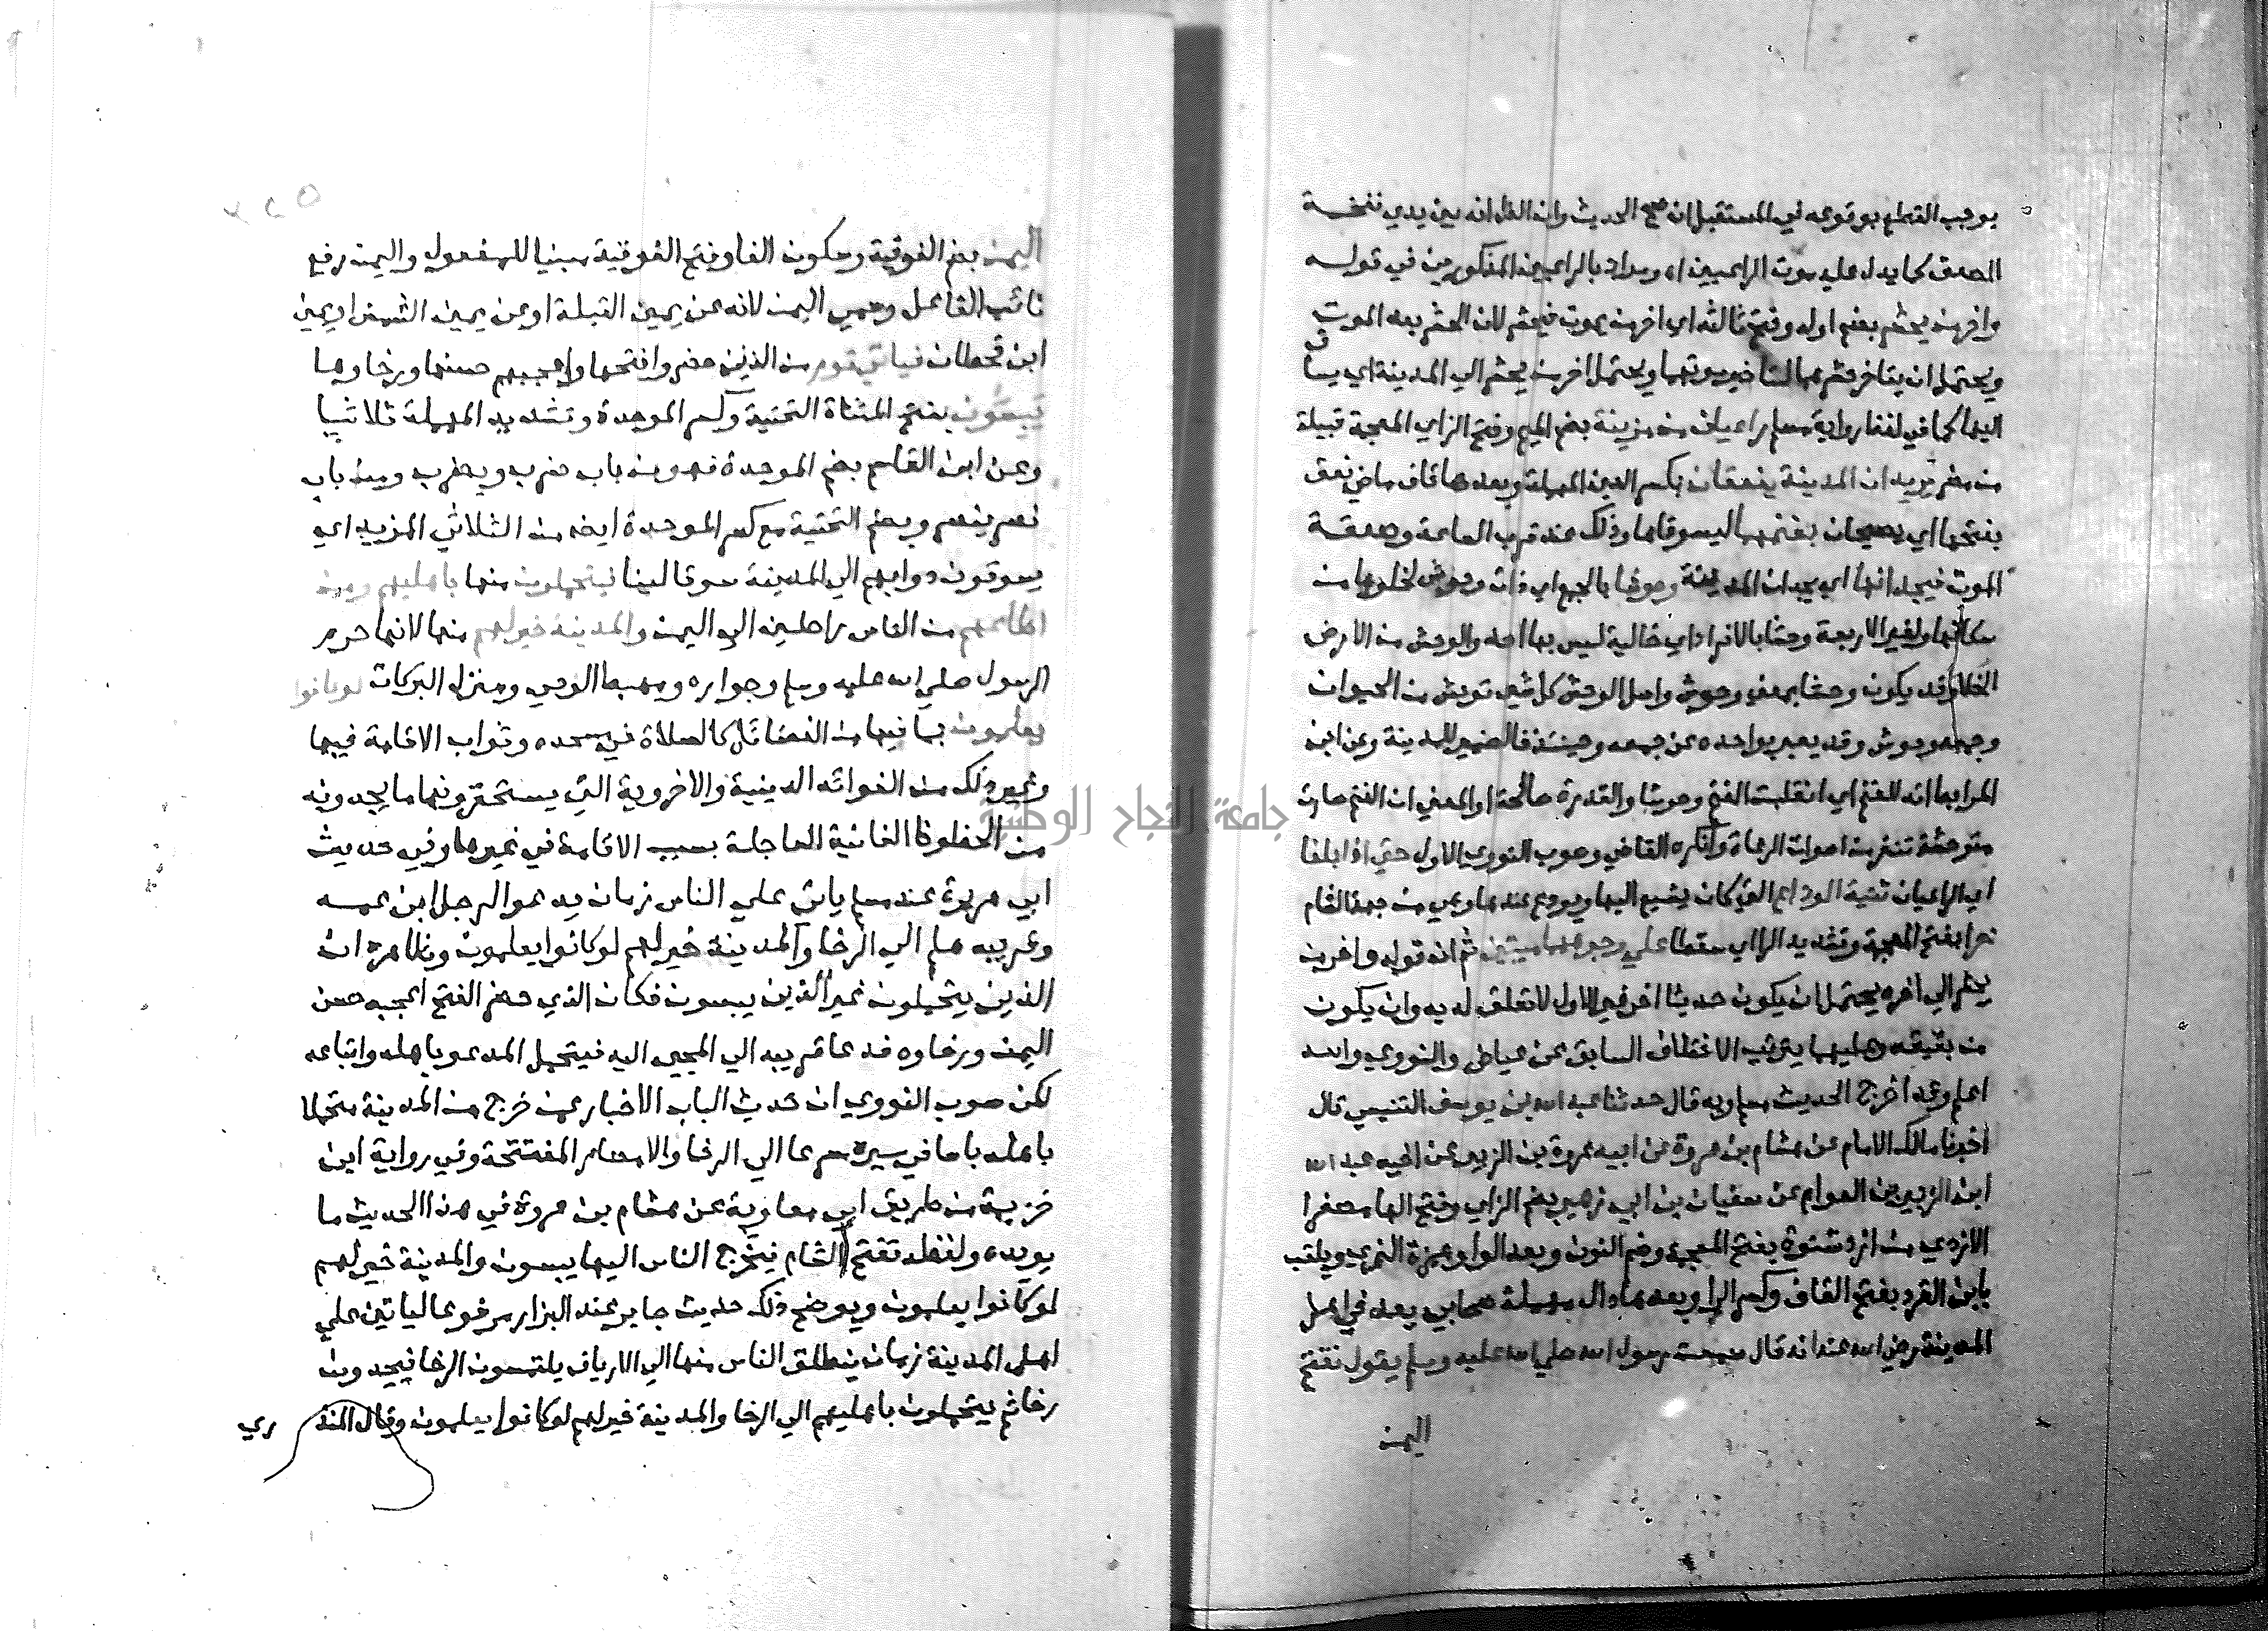 يوجب القطع بوقوعه في المستقبل ان صح الحديث وان الظاهر انه بين يدي نفخة
الصعق كما يدل عليه موت الراعيين اه ومراده بالراعيين المذكورين في قوله
وآخر من يحشر بضم اوله وفتح ثالثه اي اخر من يموت فيحشر لان الحشر بعد الموت
ويحتمل ان يتاخر حشرهما لتاخير موتهما ويحتمل اخر من يحشر الي المدينة اي يساق
اليها كما في لفظ رواية مسلم راعيان من مزينة بضم الميم وفتح الزاي المعجمة قبيلة
من مضر يريدان المدينة ينعقان بكسر العين المهملة وبعدها قاف ماضي نعق
بفتحها اي يصيحان بغنمهما ليسوقاها وذلك عند قرب الساعة وصعقة
الموت فيجدانها اي يجدان المدينة وحوشا بالجمع اي ذات وحوش لخلوها من
سكانها ولغير الاربعة وحشا بالافراد اي خالية ليس بها احد والوحش من الارض
الخلا وقد يكون وحشا بمعني وحوش واصل الوحش كل شي توحش من الحيوان
وجمعه وحوش وقد يعبر بواحده عن جمعه وحينئذ فالضمير للمدينة وعن ابن
المرابط انه للغنم اي انقلبت الغنم وحوشا والقدرة صالحة او المعني ان الغنم صارت
متوحشة تنفر من اصوات الرعاة وانكره القاضي وصوب النووي الاول حتي اذا بلغا
اي الراعيان ثنية الوداع التي كان يشيع اليها ويودع عندها وهي من جهة الشام
خرا بفتح المعجمة وتشديد الراء اي سقطا علي وجوههما ميتين ثم ان قوله واخر من
يحشر الي اخره يحتمل ان يكون حديثا اخر غير الاول لا تعلق له به وان يكون
من بقيته وعليهما يترتب الاختلاف السابق عن عياض والنووي والله
اعلم وقد اخرج الحديث مسلم وبه قال حدثنا عبد الله بن يوسف التنيسي قال
اخبرنا مالك الامام عن هشام بن عروة عن ابيه عروة بن الزبير عن اخيه عبد الله
ابن الزبير بن العوام عن سفيان بن ابي زهير بضم الزاي وفتح الها مصغرا
الازدي من ازد شنوءة بفتح المعجمة وضم النون وبعد الواو همزة النمري ويلقب
بابن القرد بفتح القاف وكسر الرا وبعدها دال مهملة صحابي يعد في اهل
المدينة رضي الله عنه انه قال سمعت رسول الله صلي الله عليه وسلم يقول تفتح
اليمن
اليمن بضم الفوقية وسكون الفا وفتح الفوقية مبنيا للمفعول واليمن رفع
نائب الفاعل وسمي اليمن لانه عن يمين القبلة او عن يمين الشمس او بيمن
ابن قحطان فياتي قوم من الذين حضروا فتحها واعجبهم حسنها ورخاوها
يبسون بفتح المثناة التحتية وكسر الموحدة وتشديد المهملة ثلاثيا
وعن ابن القاسم بضم الموحدة فهو من باب ضرب ويضرب ومن باب
نصر ينصر وبضم التحتية مع كسر الموحدة ايضا من الثلاثي المزيد اي
يسوقون دوابهم الي المدينة سوقا لينا فيتحملون منها باهليهم ومن
اطاعهم من الناس راحلين الي اليمن والمدينة خير لهم منها لانها حرم
الرسول صلي الله عليه وسلم وجواره ومهبط الوحي ومنزل البركات لو كانوا
يعلمون بما فيها من الفضائل كالصلاة في مسجده وثواب الاقامة فيها
وغير ذلك من الفوائد الدينية والاخروية التي يستحقر دونها ما يجدونه
من الحظوظ الفانية العاجلة بسبب الاقامة في غيرها وفي حديث
ابي هريرة عند مسلم ياتي علي الناس زمان يدعو الرجل ابن عمه
وقريبه هلم الي الرخا والمدينة خير لهم لو كانوا يعلمون وظاهره ان
الذين يتحملون غير الذين يبسون فكان الذي حضر الفتح اعجبه حسن
اليمن ورخاوه فدعا قريبه الي المجيي اليه فيتحمل المدعو باهله واتباعه
لكن صوب النووي ان حديث الباب الاخبار عمن خرج من المدينة متحملا
باهله باسا في سيره مسرعا الي الرخا والامصار المفتتحة وفي رواية ابن
خزيمة من طريق ابي معاوية عن هشام بن عروة في هذا الحديث ما
يويده ولفظه تفتح الشام فيخرج الناس اليها يبسون والمدينة خير لهم
لو كانوا يعلمون ويوضح ذلك حديث جابر عند البزار مرفوعا لياتين علي
اهل المدينة زمان ينطلق الناس منها الي الارياف يلتمسون الرخا فيجدون
رخا ثم يتحملون باهليهم الي الرخا والمدينة خير لهم لو كانوا يعلمون وقال المنذ ري
جامعة النجاح الوطنية